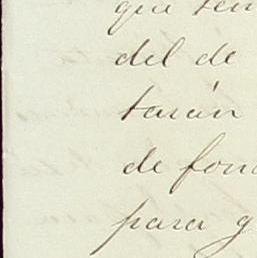 que ten
del de
tarán
de fon
para q